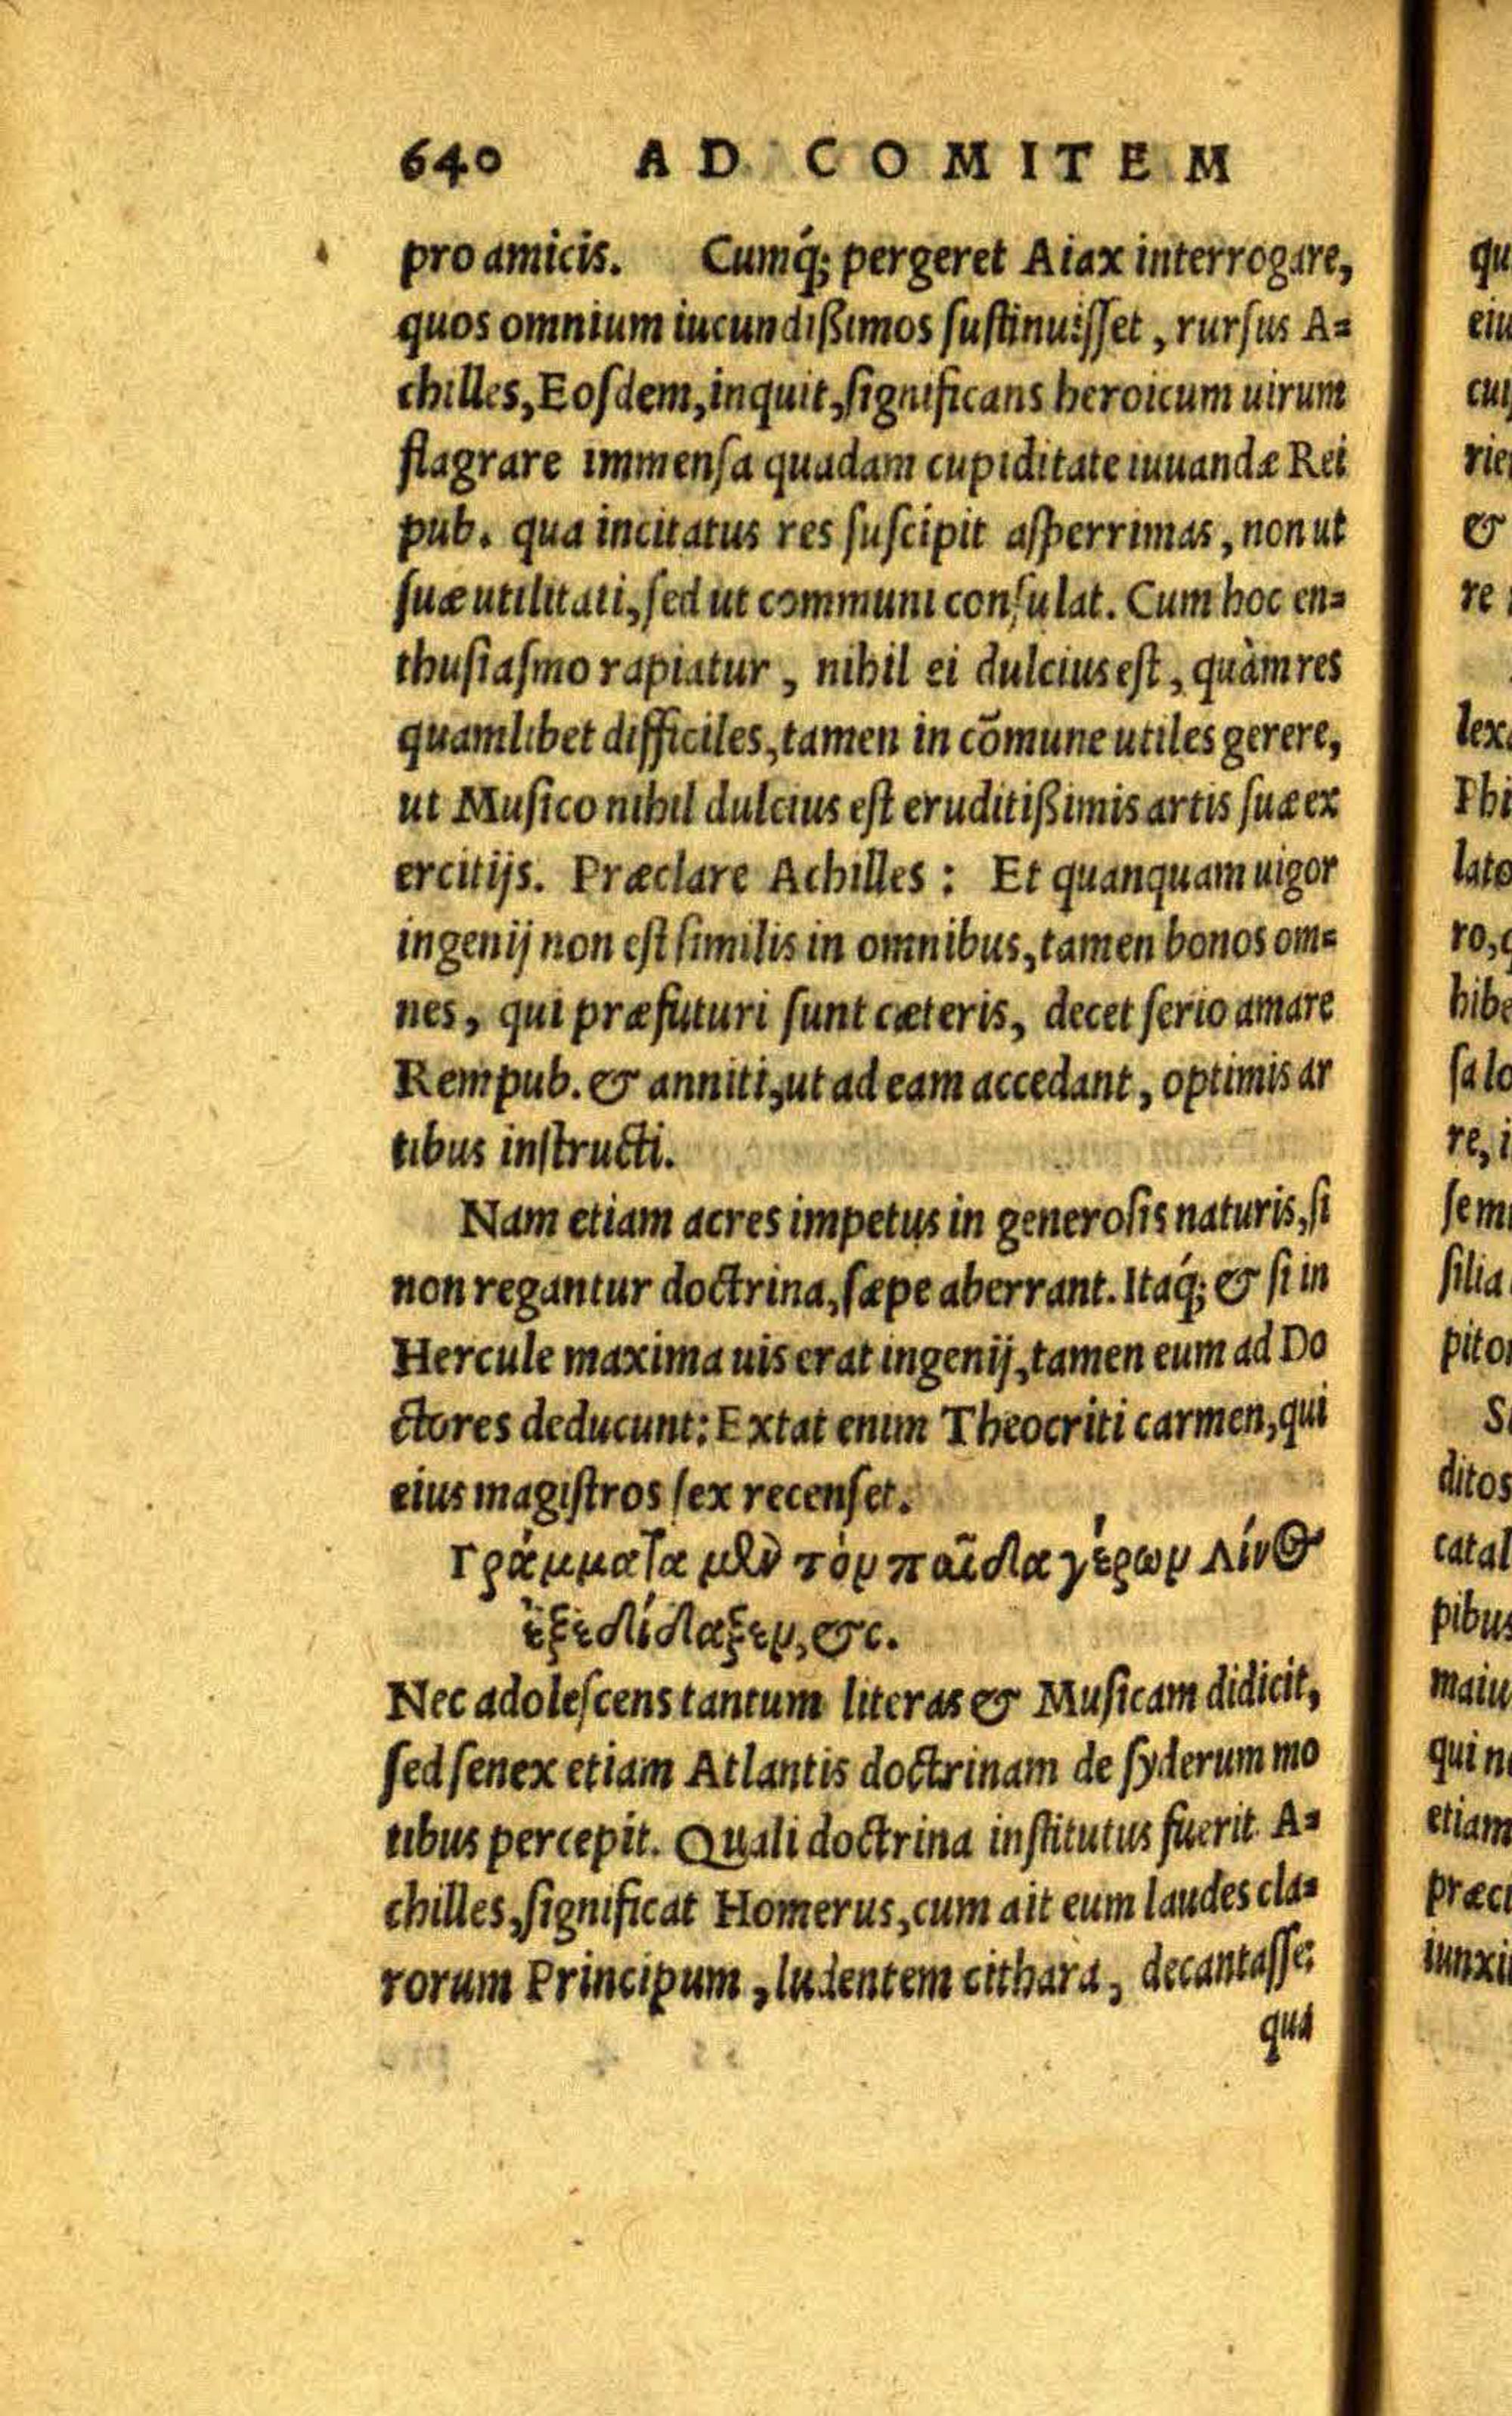 640 AD COMITEM
pro amicis. Cumq́; pergeret Aiax interrogare,
quos omnium iucundißimos ſuſtinuiſſet, rurſus A=
chilles, Eoſdem, inquit, ſignificans heroicum uirum
flagrare immenſa quadam cupiditate iuuandæ Rei
pub. qua incitatus res ſuſcipit aſperrimas, non ut
ſuæ utilitati, ſed ut communi conſulat. Cum hoc en=
thuſiaſmo rapiatur, nihil ei dulcius eſt, quàm res
quamlibet difficiles, tamen in cōmune utiles gerere,
ut Muſico nihil dulcius eſt eruditißimis artis ſuæ ex
ercitijs. Præclare Achilles: Et quanquam uigor
ingenij non eſt ſimilis in omnibus, tamen bonos om=
nes, qui præfuturi ſunt cæteris, decet ſerio amare
Rempub. & anniti, ut ad eam accedant, optimis ar
tibus inſtructi.
Nam etiam acres impetus in generoſis naturis, ſi
non regantur doctrina, ſæpe aberrant. Itaq́; & ſi in
Hercule maxima uis erat ingenij, tamen eum ad Do
ctores deducunt: Extat enim Theocriti carmen, qui
eius magiſtros ſex recenſet.
Γράμματα μὲν τὸν παῖδα γέρων Λίνος
ἐξεδίδαξεν, &c.
Nec adoleſcens tantum literas & Muſicam didicit,
ſed ſenex etiam Atlantis doctrinam de ſyderum mo
tibus percepit. Quali doctrina inſtitutus fuerit A=
chilles, ſignificat Homerus, cum ait eum laudes cla=
rorum Principum, ludentem cithara, decantaſſe:
qua
qu
eiu
cui
rie
&
re
lex
Phi
lato
ro,
hibe
ſa lo
re, i
ſem
ſilia
pito
S
ditos
catal
pibus
maiu
qui n
etiam
præci
iunxi